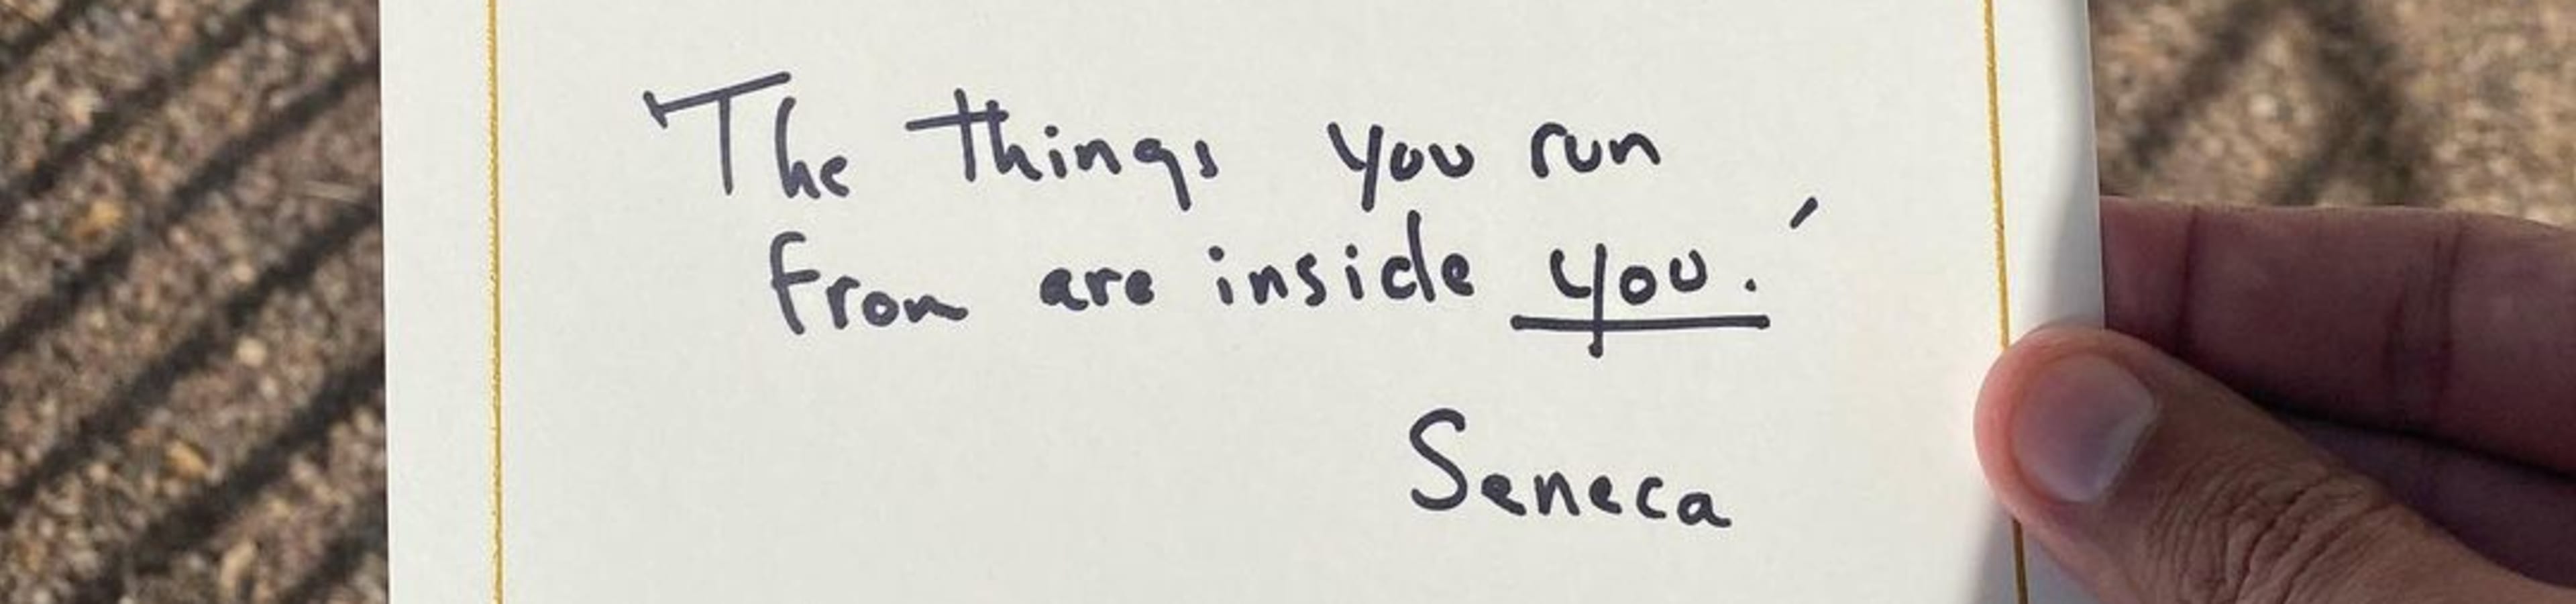 'The things you run
from are inside you.'
Seneca